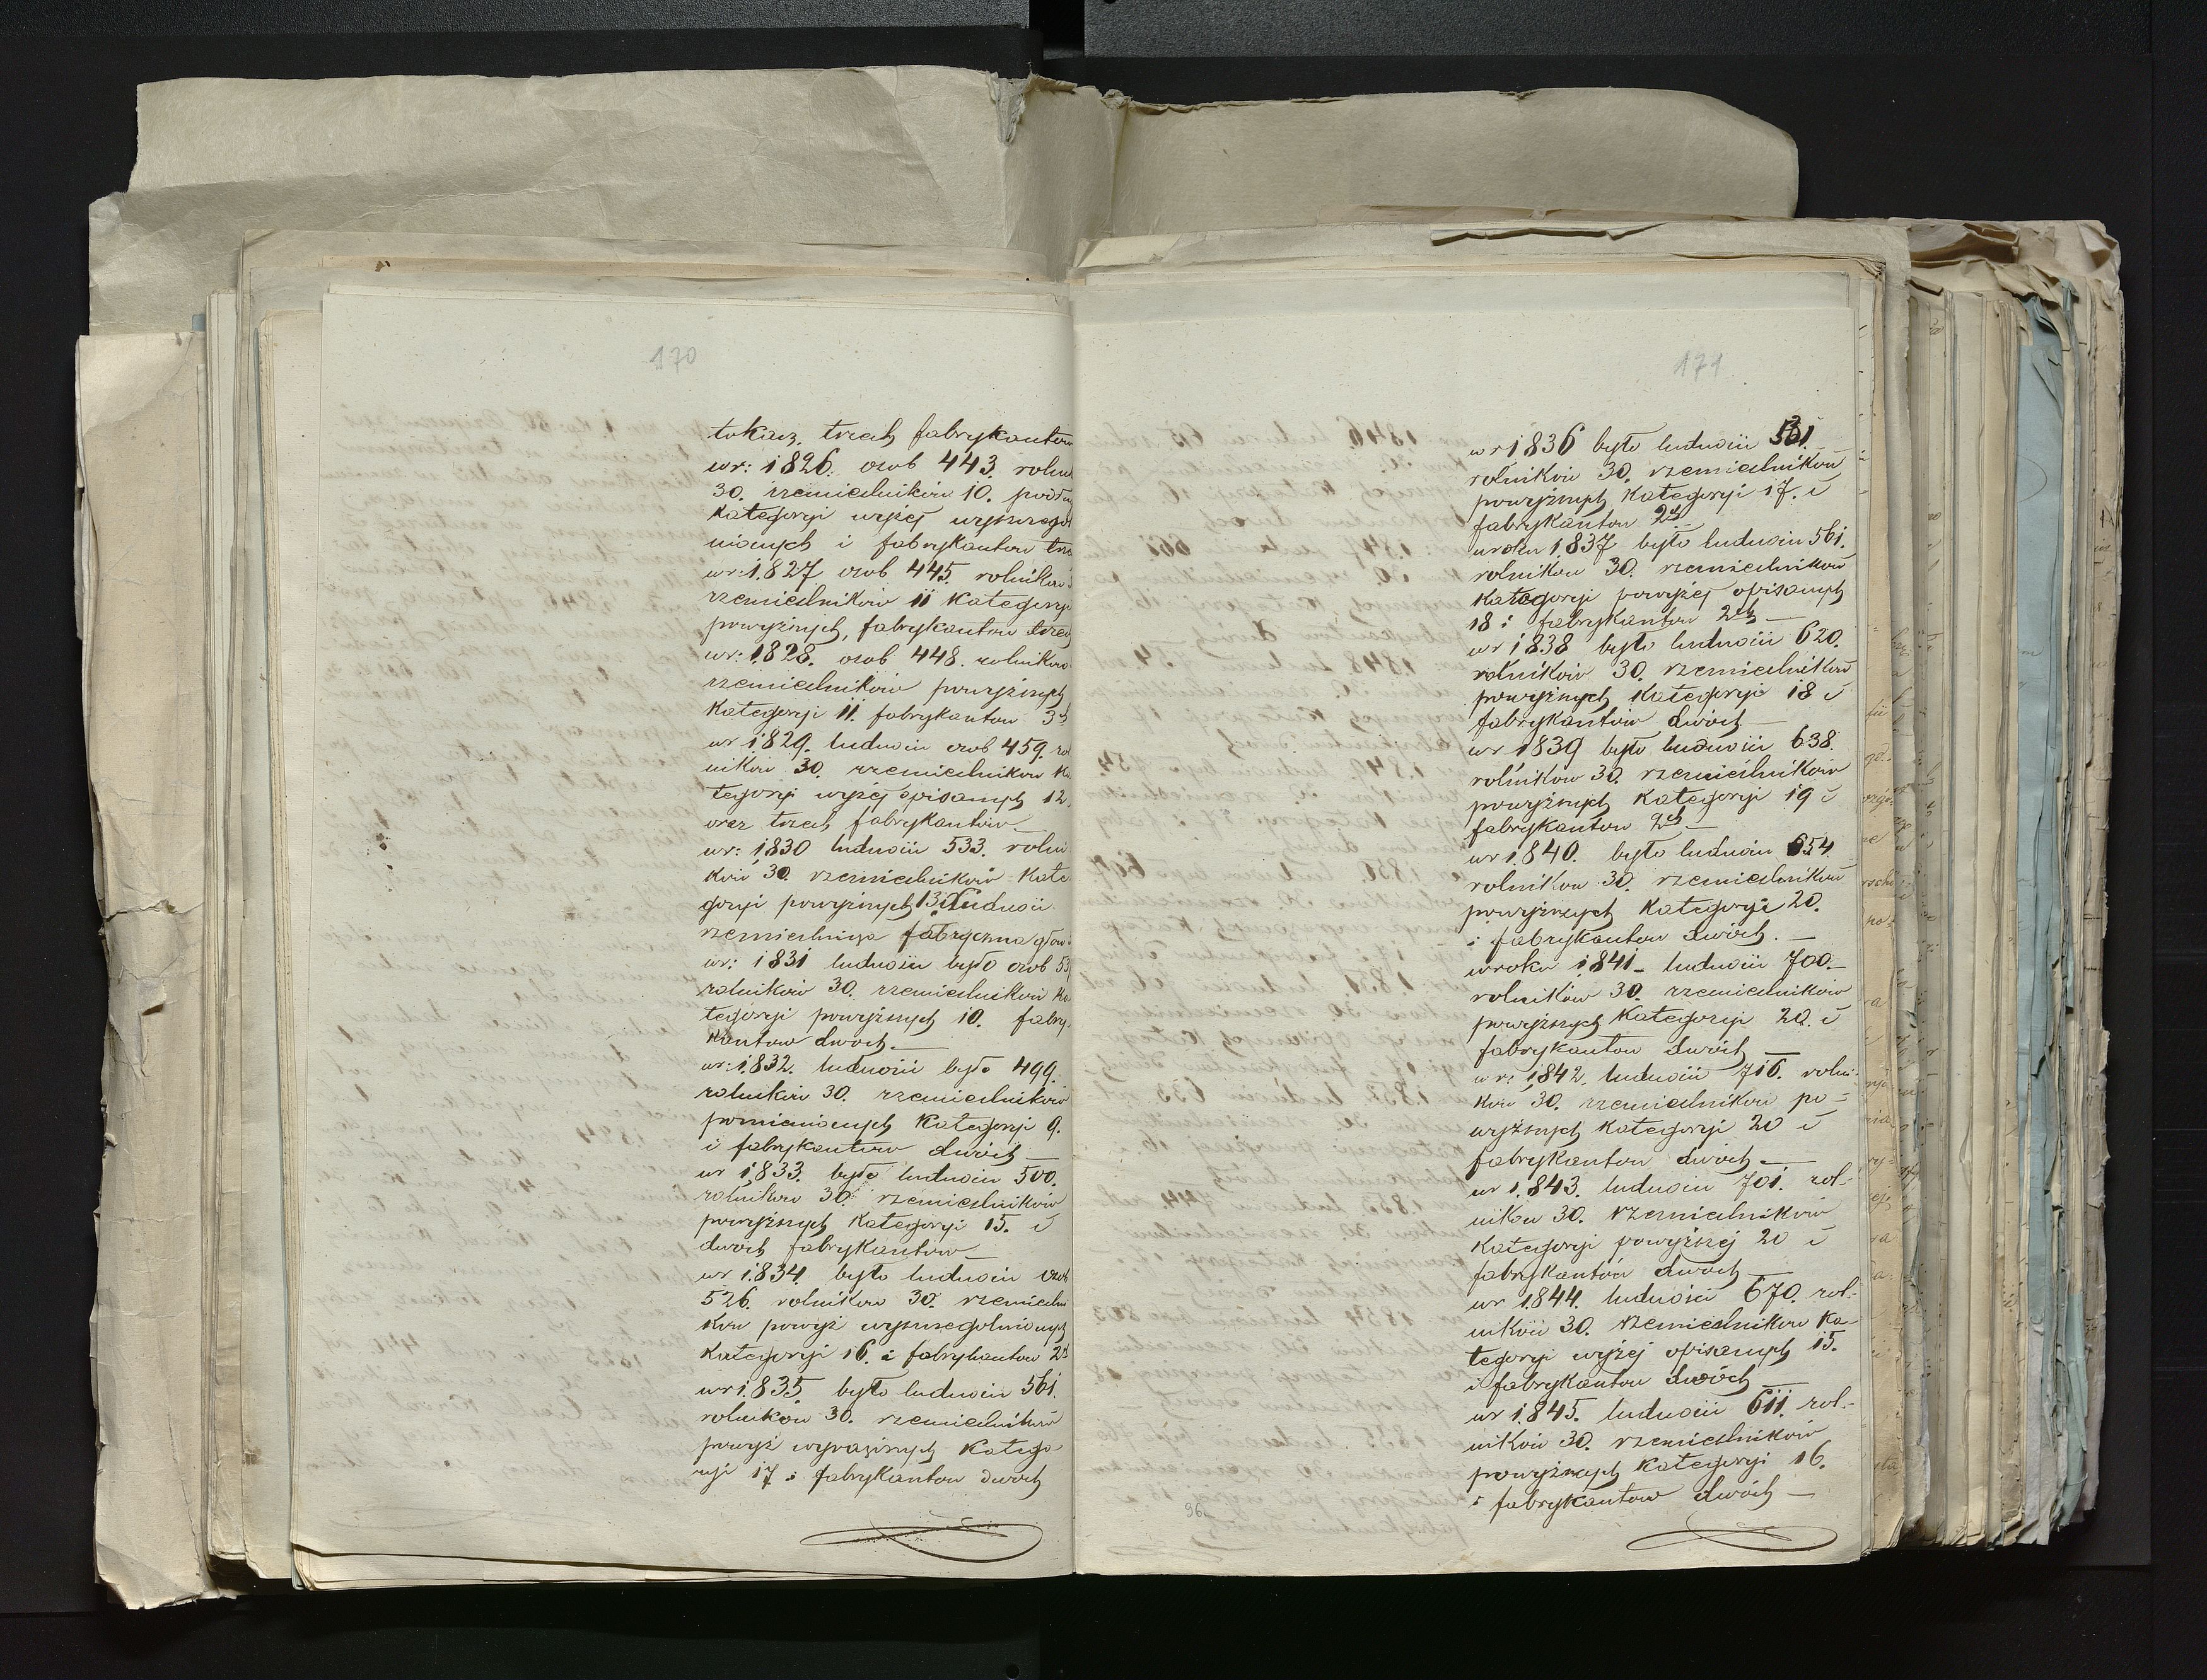 170
tokarz. trzech fabrykantow
w r: 1826. osob 443. rolni
30. rzemieslników 10. podłu
Kategoryi wyżej wyszczegól
nionych i fabrykantow trze
w r: 1.827 osob 445. rolnikow
rzemieslników 11 Kategoryi
powyższych, fabrykantow trzec
w r: 1.828. osob 448. rolnikow
rzemieslników powyższych
Kategoryi 11. fabrykantow 3ch
w r 1.829. ludności osob 459. rol
nikow 30. rzemieslnikow Ka
tegoryi wyżej opisanych 12.
oraz trzech fabrykantów —
w r: 1830 ludności 533. rolni
ków 30. rzemieslników Kate
goryi powyższych 13. Ludność
rzemieslnicza fabryczna głow
w r: 1831 ludności było osob 53
rolników 30. rzemieslnikow Ka
tegoryi powyższych 10. fabry-
kantow dwóch. —
w r: 1.832. ludności było 499.
rolników 30. rzemieslników
pomienionych Kategoryi 9.
i fabrykantow dwóch —
w r 1.833. było ludności 500.
rolników 30. rzemieslników
powyższych Kategoryi 15. i
dwóch fabrykantów —
w r 1.834. było ludności osob
526. rolników 30. rzemieslni
ków powyż wyszczegolnionych
Kategoryi 16. i fabrykantow 2ch
w r 1.835 było ludności 561.
rolników 30. rzemieslników
powyż wyrażonych Katego-
ryi 17 i fabrykantow dwóch
171
w r 1836 było ludności 561
rolników 30. rzemieslników
powyższych Kategoryi 17. i
fabrykantow 2ch
w roku 1.837 było ludności 561.
rolnikow 30. rzemieslników
Kategoryi powyżej opisanych
18 i fabrykantow 2ch —
w r 1838 było ludności 620.
rolników 30. rzemieslników
powyższych Kategoryi 18 i
fabrykantów dwóch —
w r 1839 było ludności 638.
rolnikow 30. rzemieślników
powyższych Kategoryi 19 i
fabrykantow 2ch —
w r 1.840. było ludności 654.
rolnikow 30. rzemieslników
powyższych Kategoryi 20.
i fabrykantow dwóch. —
w roku 1841 — ludności 700. —
rolników 30. rzemieslników
powyższych Kategoryi 20. i
fabrykantow dwóch —
w r: 1842. ludności 716. rolni-
kow 30. rzemieslnikow po-
wyższych Kategoryi 20 i
fabrykantow dwóch —
w r 1.843. ludności 701. rol-
nikow 30. rzemieslników
Kategoryi powyższej 20 i
fabrykantów dwóch —
w r 1.844. ludności 670. rol-
ników 30. rzemieslnikow Ka-
tegoryi wyżej opisanych 15.
i fabrykantow dwóch —
w r 1.845. ludności 611. rol-
ników 30. rzemieslników
powyższych Kategoryi 16.
i fabrykantow dwóch —
96.